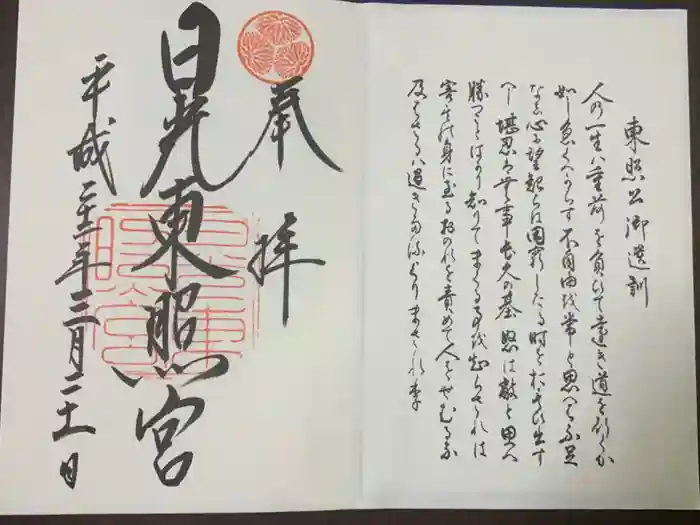 東照公御遺訓
人の一生は重荷を負ひて遠き道を行くか
如し急くへからす不自由を常と思へは不足
なし心に望起らは困窮したる時を思ひ出す
へし堪忍は無事長久の基怒は敵と思へ
勝つことはかり知りてまくる事を知らされは
害其の身に至るおのれを責めて人をせむるな
及はさるは過きたるよりまされり
奉拝
日光東照宮
平成二十二年三月二十一日